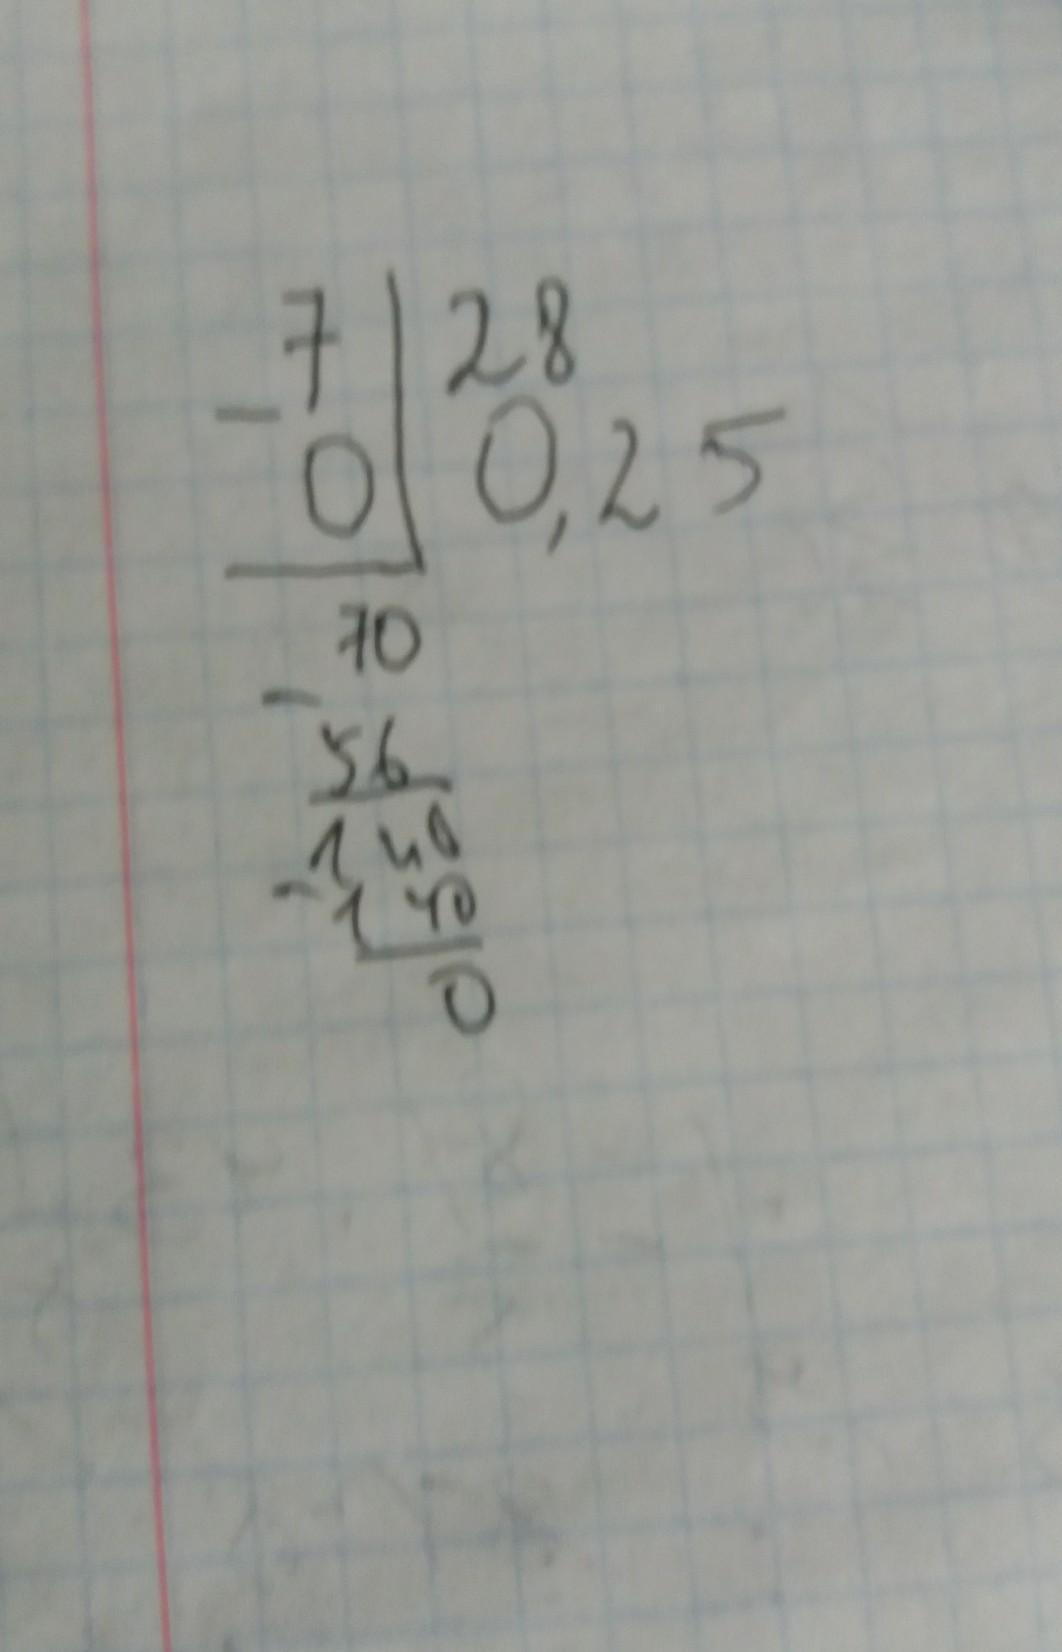 7 28
- 0 0,25
70
-
56
140
- 140
0